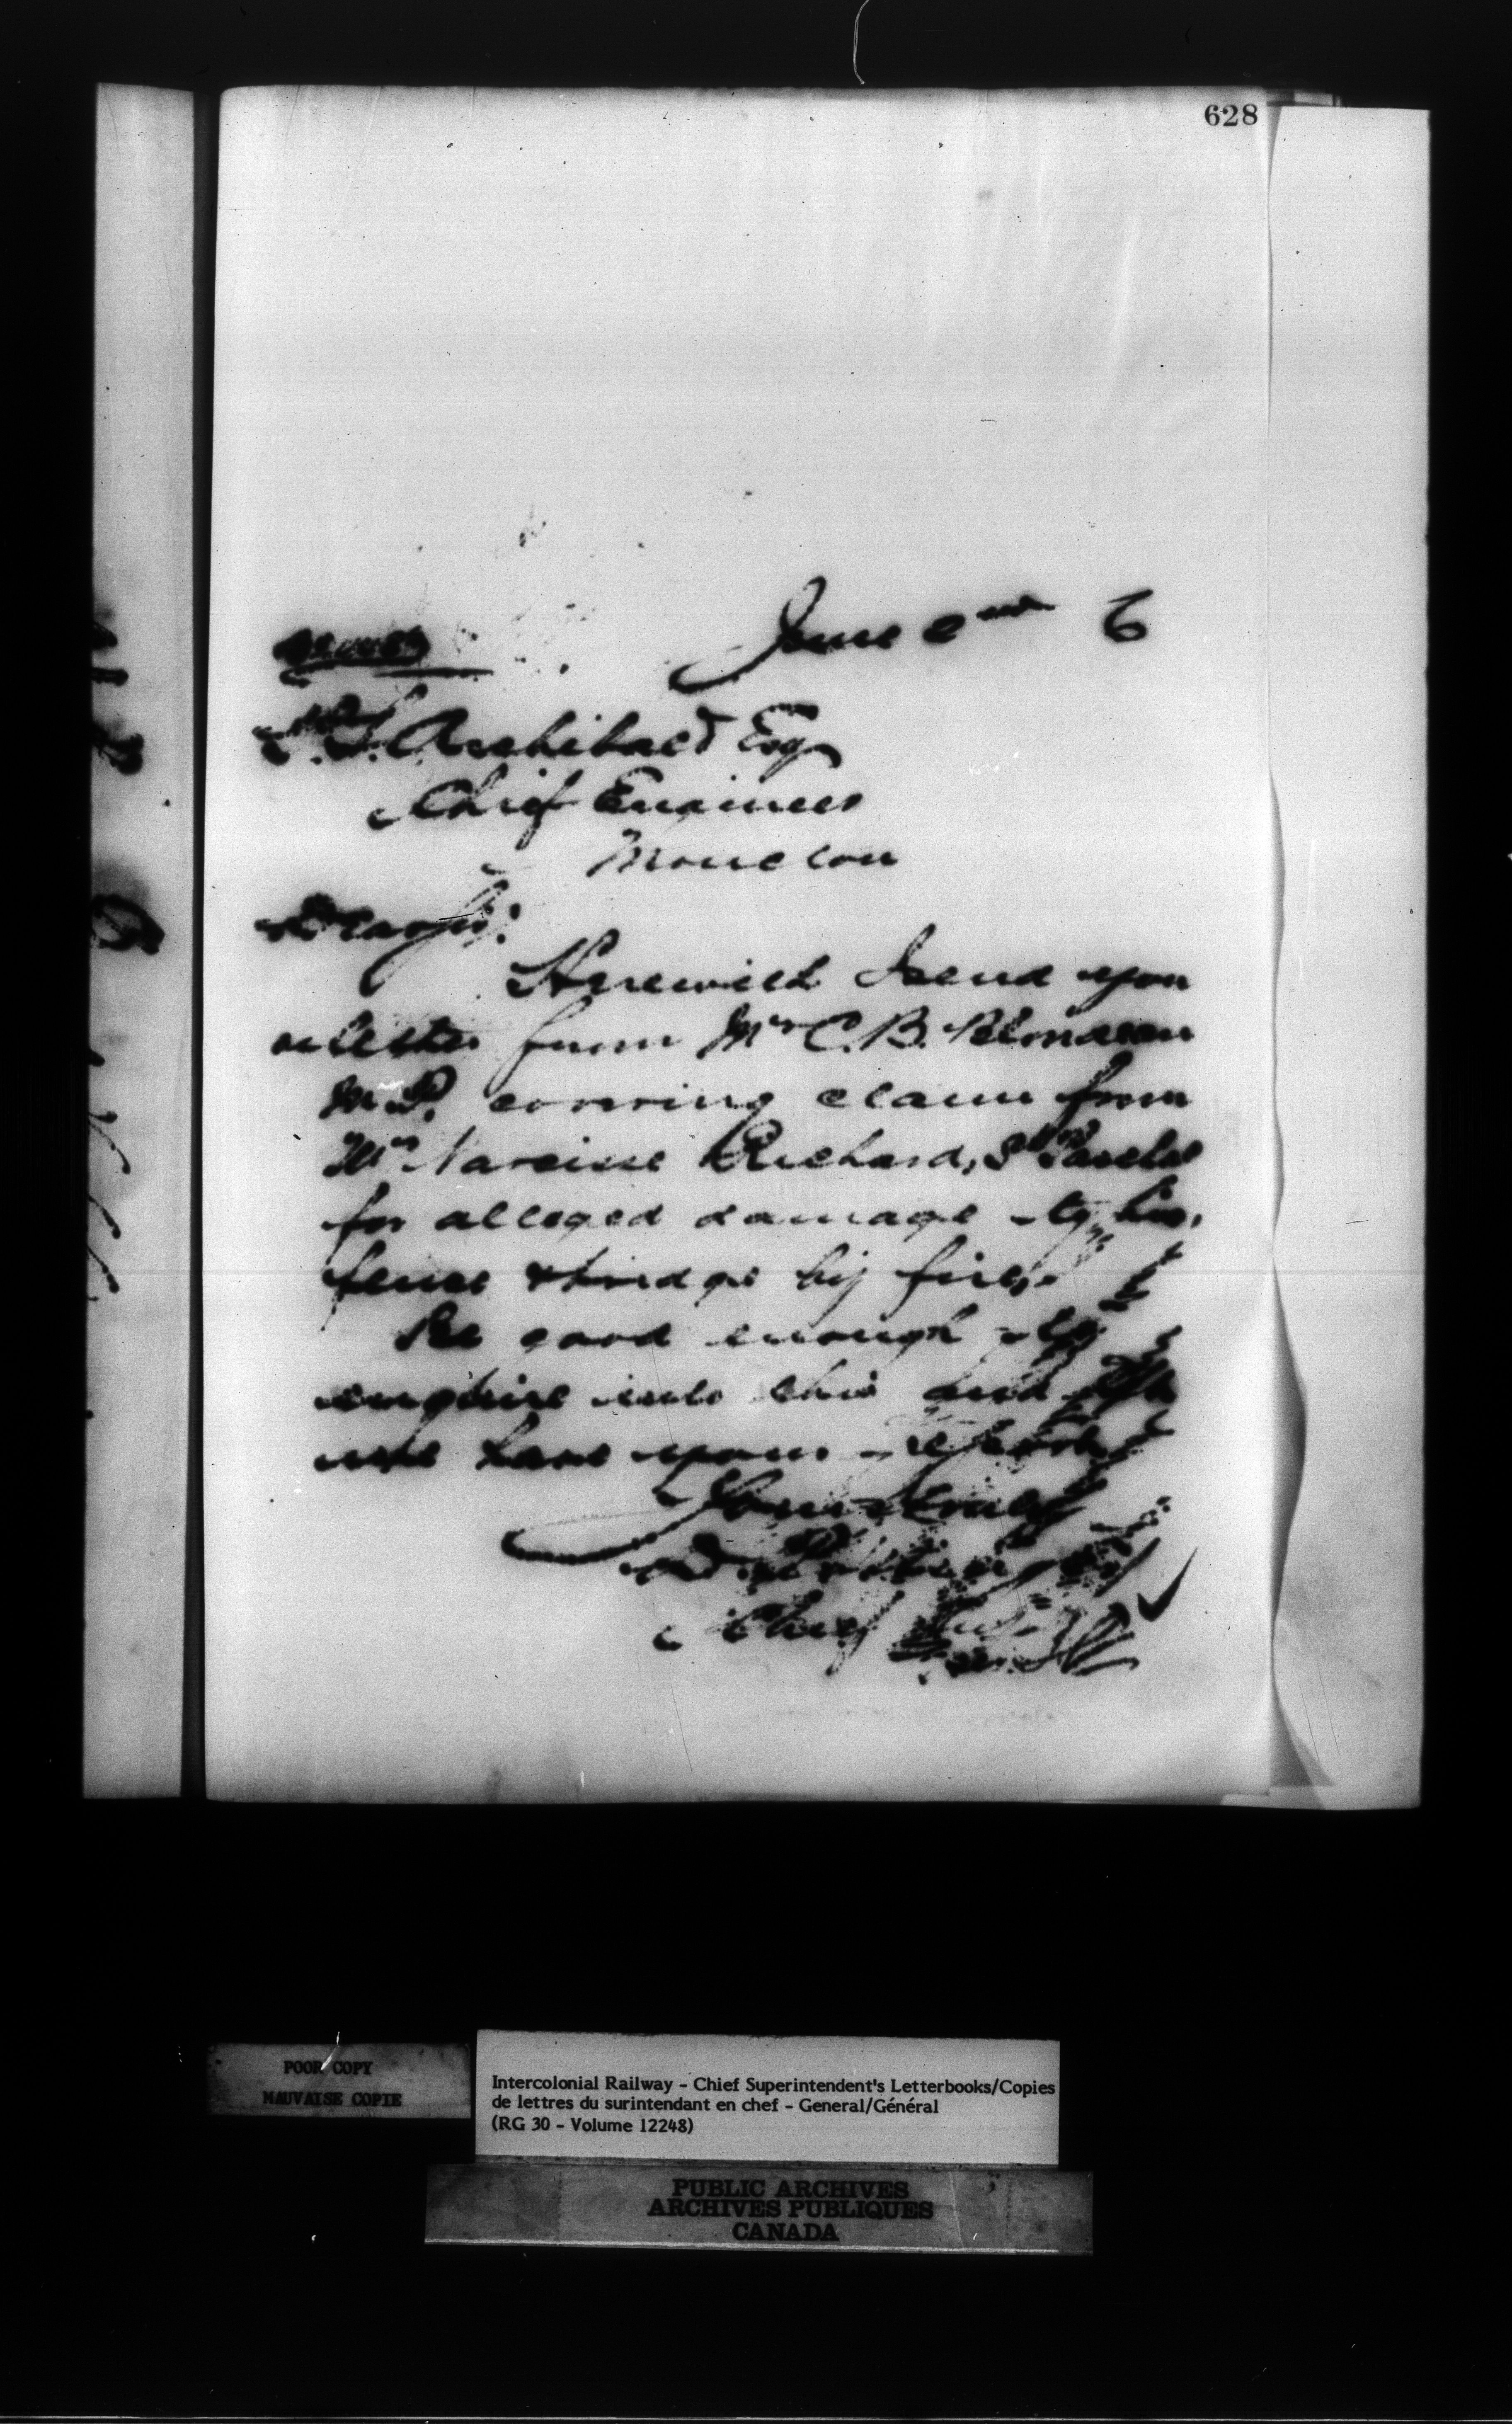 628
June 2nd 6
P.S. Archibald Esq
Chief Engineer
Moncton
Dear Sir:
Herewith I send you
a letter from Mr C.B.
M.P. covering claim from
Mr Narcisse Richard, St
for alleged damage to his
fence & bridge by fire.
Be good enough to
enquire into this and let
me have your report
Yours truly
D. Pottinger
Chief Supt
POOR COPY
MAUVAISE COPIE
Intercolonial Railway - Chief Superintendent's Letterbooks/Copies
de lettres du surintendant en chef - General/Général
(RG 30 - Volume 12248)
PUBLIC ARCHIVES
ARCHIVES PUBLIQUES
CANADA